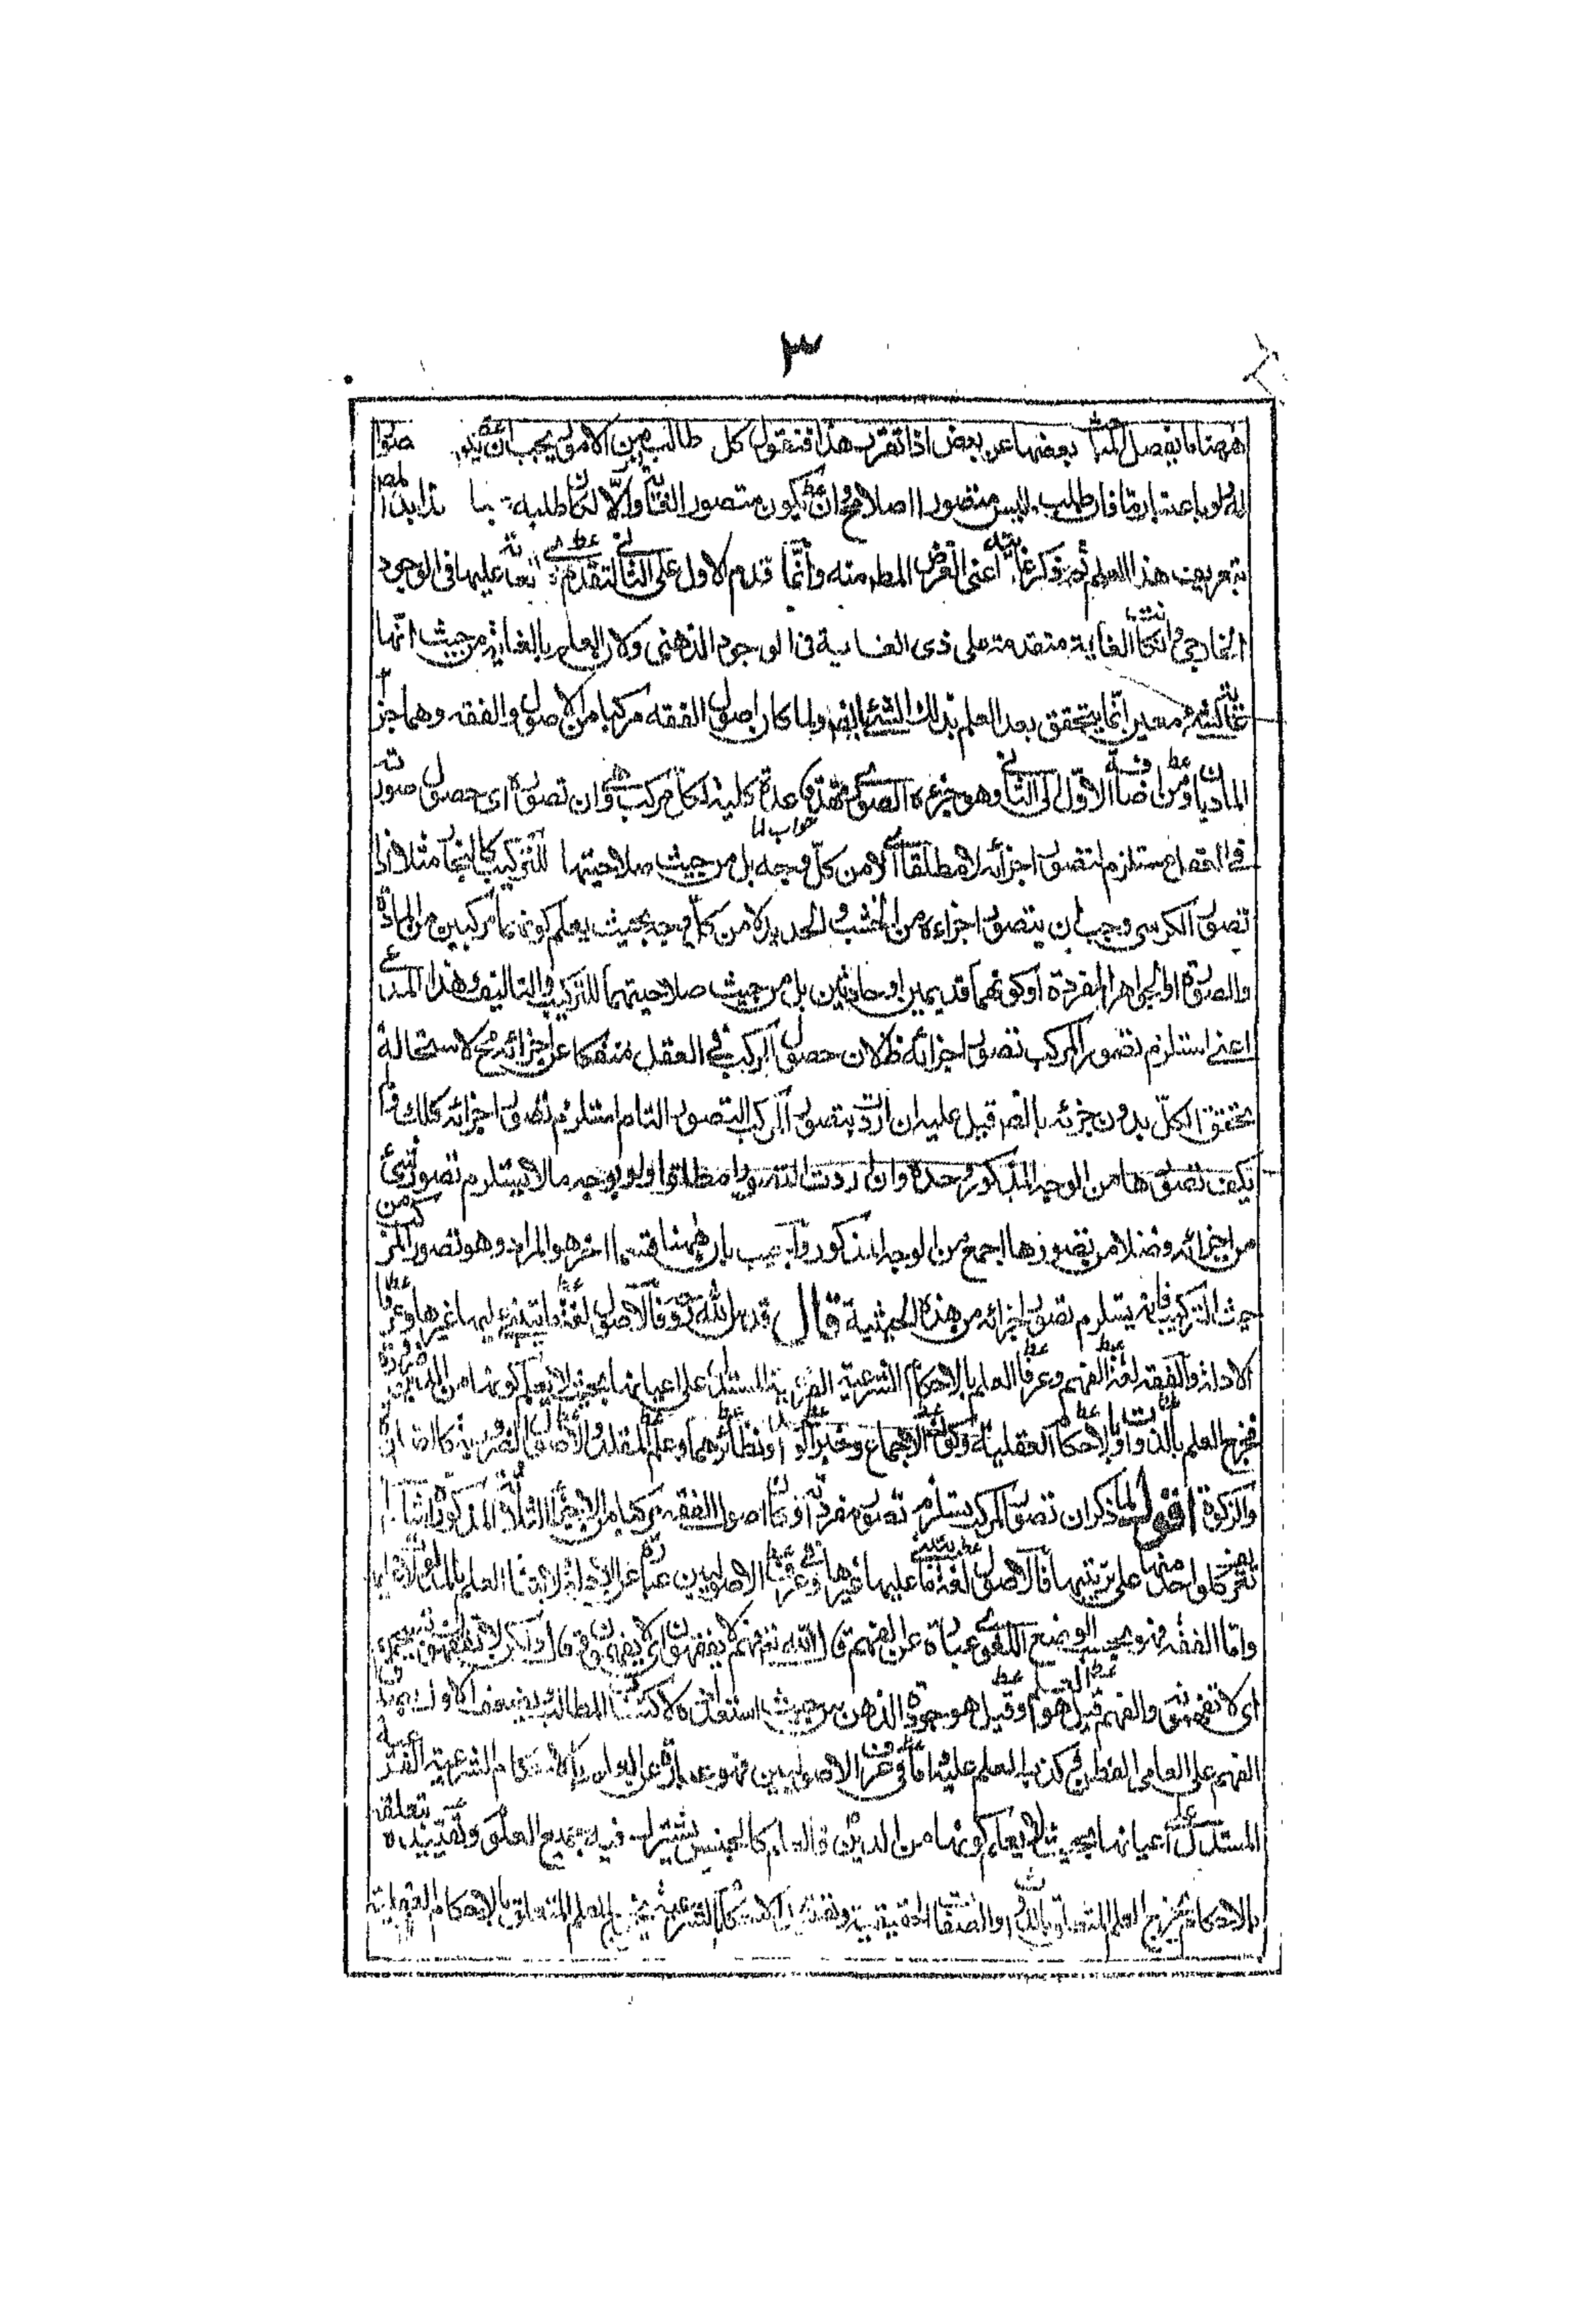 ٣
ههنا ما يفصل بعضها عن بعض اذا تقرر هذا فنقول كل طالب من الامور يجب ان
له ولو باعتبار ما فان طلب ما ليس متصورا اصلا مح وان يكون متصور الفائدة والا لكان طلبه
تعريف هذا العلم ثم ذكر غايته اعنى الغرض المطلوب منه وانما قدم الاول على الثانى لتقدم عليها فى الوجود
الخارجى وان كانت الغاية متقدمة على ذى الغاية فى الوجود الذهنى ولان العلم بالغاية من حيث انها
غاية لشىء معين انما يتحقق بعد العلم بذلك الشىء بالضرورة ولما كان اصول الفقه مركبا من الاصول والفقه وهما جزءاه
الماديان ومن اضافة الاول الى الثانى وهو جزءه الصورى مهد قاعدة كلية لكل مركب وان تصوره اى حصول صورته
فى العقل مستلزم لتصور اجزائه لا مطلقا اى لا من كل وجه بل من حيث صلاحيتها للتركيب كالبنيان مثلا اذا
تصور الكرسى وجب ان يتصور اجزاءه من الخشب والحديد لا من كل وجه بحيث يعلم كونهما مركبين من المادة
والصورة او الجواهر المفردة او كونهما قديمين او حادثين بل من حيث صلاحيتهما للتركيب والتاليف وهذا المدعى
اعنى استلزم تصور المركب تصور اجزائه ظ لان حصول المركب فى العقل منفكا عن اجزائه مح لاستحالة
تحقق الكل بدون جزئه بالضرورة قيل عليه ان اردت بتصور المركب التصور التام استلزم تصور اجزائه كذلك ولم
يكف تصورها من الوجه المذكور وحده وان اردت التصور مطلقا ولو بوجه ما لا يستلزم تصور شىء
من اجزائه فضلا من تصورها اجمع من الوجه المذكور واجيب بان ههنا قسما اخر هو المراد وهو تصور المركب من
حيث التركيب فانه يستلزم تصور اجزائه من هذه الحيثية قال قدس الله روحه فالاصول لغة ما يبتنى عليها غيرها وعرفا
الادلة والفقه لغة الفهم وعرفا العلم بالاحكام الشرعية الفرعية المستدل على اعيانها بحيث لا يعلم كونها من الدين ضرورة
فخرج العلم بالذوات او بالاحكام العقلية وكون الاجماع وخبر الواحد ونظائرهما وعلم المقلد والاصول الضرورية كالصلوة
والزكوة اقول لما ذكر ان تصور المركب يستلزم تصور مفرداته وكان اصول الفقه مركبا من الاجزاء الثلثة المذكورة
تعريف كل واحد منها على ترتيبها فالاصول لغة ما يبتنى عليها غيرها وفى عرف الاصوليين عبارة عن الادلة
واما الفقه فهو بحسب الوضع اللغوى عبارة عن الفهم قال الله تعالى فهم لا يفقهون اى لا يفهمون وقال ولكن لا تفقهون تسبيحهم
اى لا تفهمون والفهم قيل هو العلم وقيل هو جودة الذهن من حيث استعداده لاكتساب المطالب
الفهم على العامى الفطن مع كذب العلم عليه واما فى عرف الاصوليين فهو عبارة عن العلم بالاحكام الشرعية الفرعية
المستدل على اعيانها بحيث لا يعلم كونها من الدين ضرورة فالعلم كالجنس يشترك فيه جميع العلوم وتقييده بتعلقه
بالاحكام يخرج العلم المتعلق بالذوات والصفات الحقيقية وتقييد الاحكام بالشرعية يخرج العلم المتعلق بالاحكام العقلية